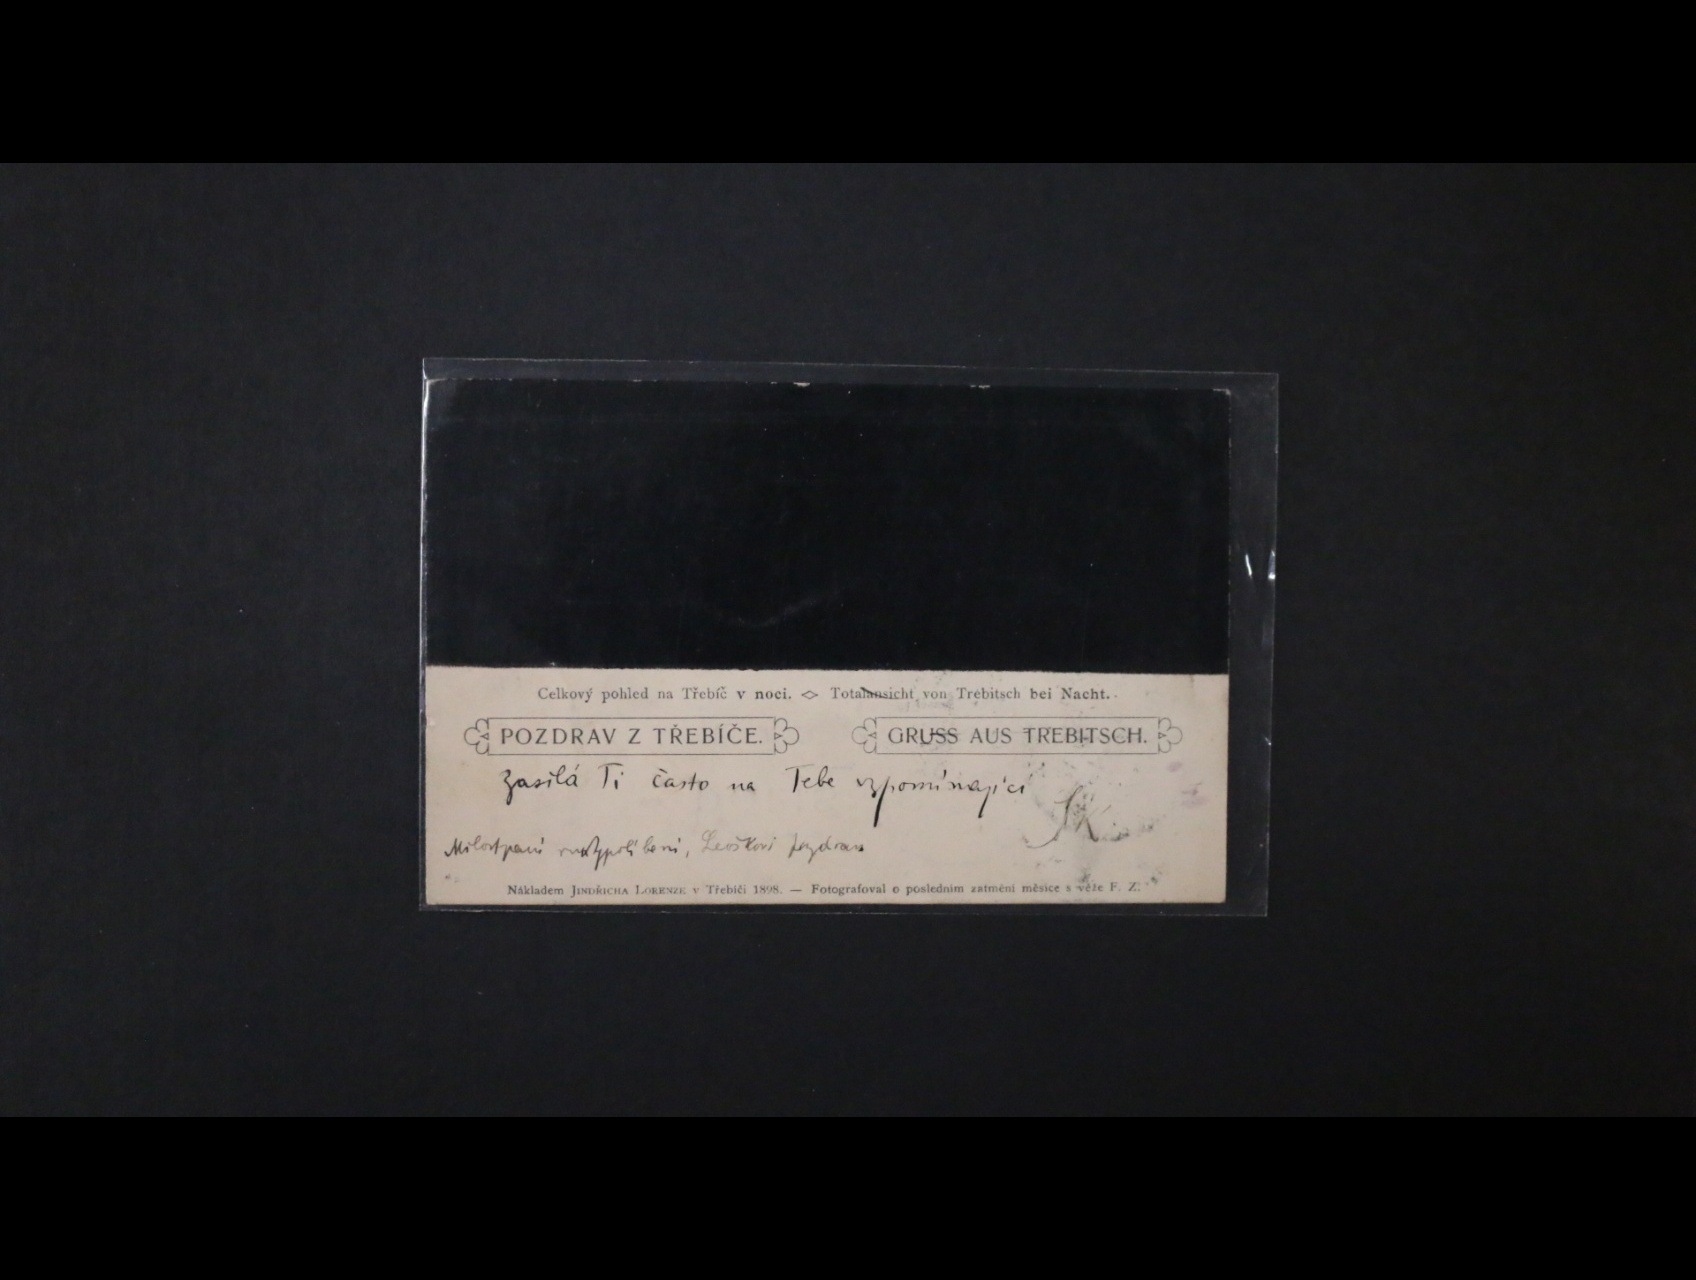 Celkový pohled na Třebíč v noci. Totalansicht von Trebitsch bei Nacht.
POZDRAV Z TŘEBÍČE. GRUSS AUS TREBITSCH.
Zasílá Ti často na Tebe vzpomínající
Milostpaní rukypolíbení, pozdrav
Nákladem JINDŘICHA LORENZE v Třebíči 1898. — Fotografoval o posledním zatmění měsíce s věže F. Z.